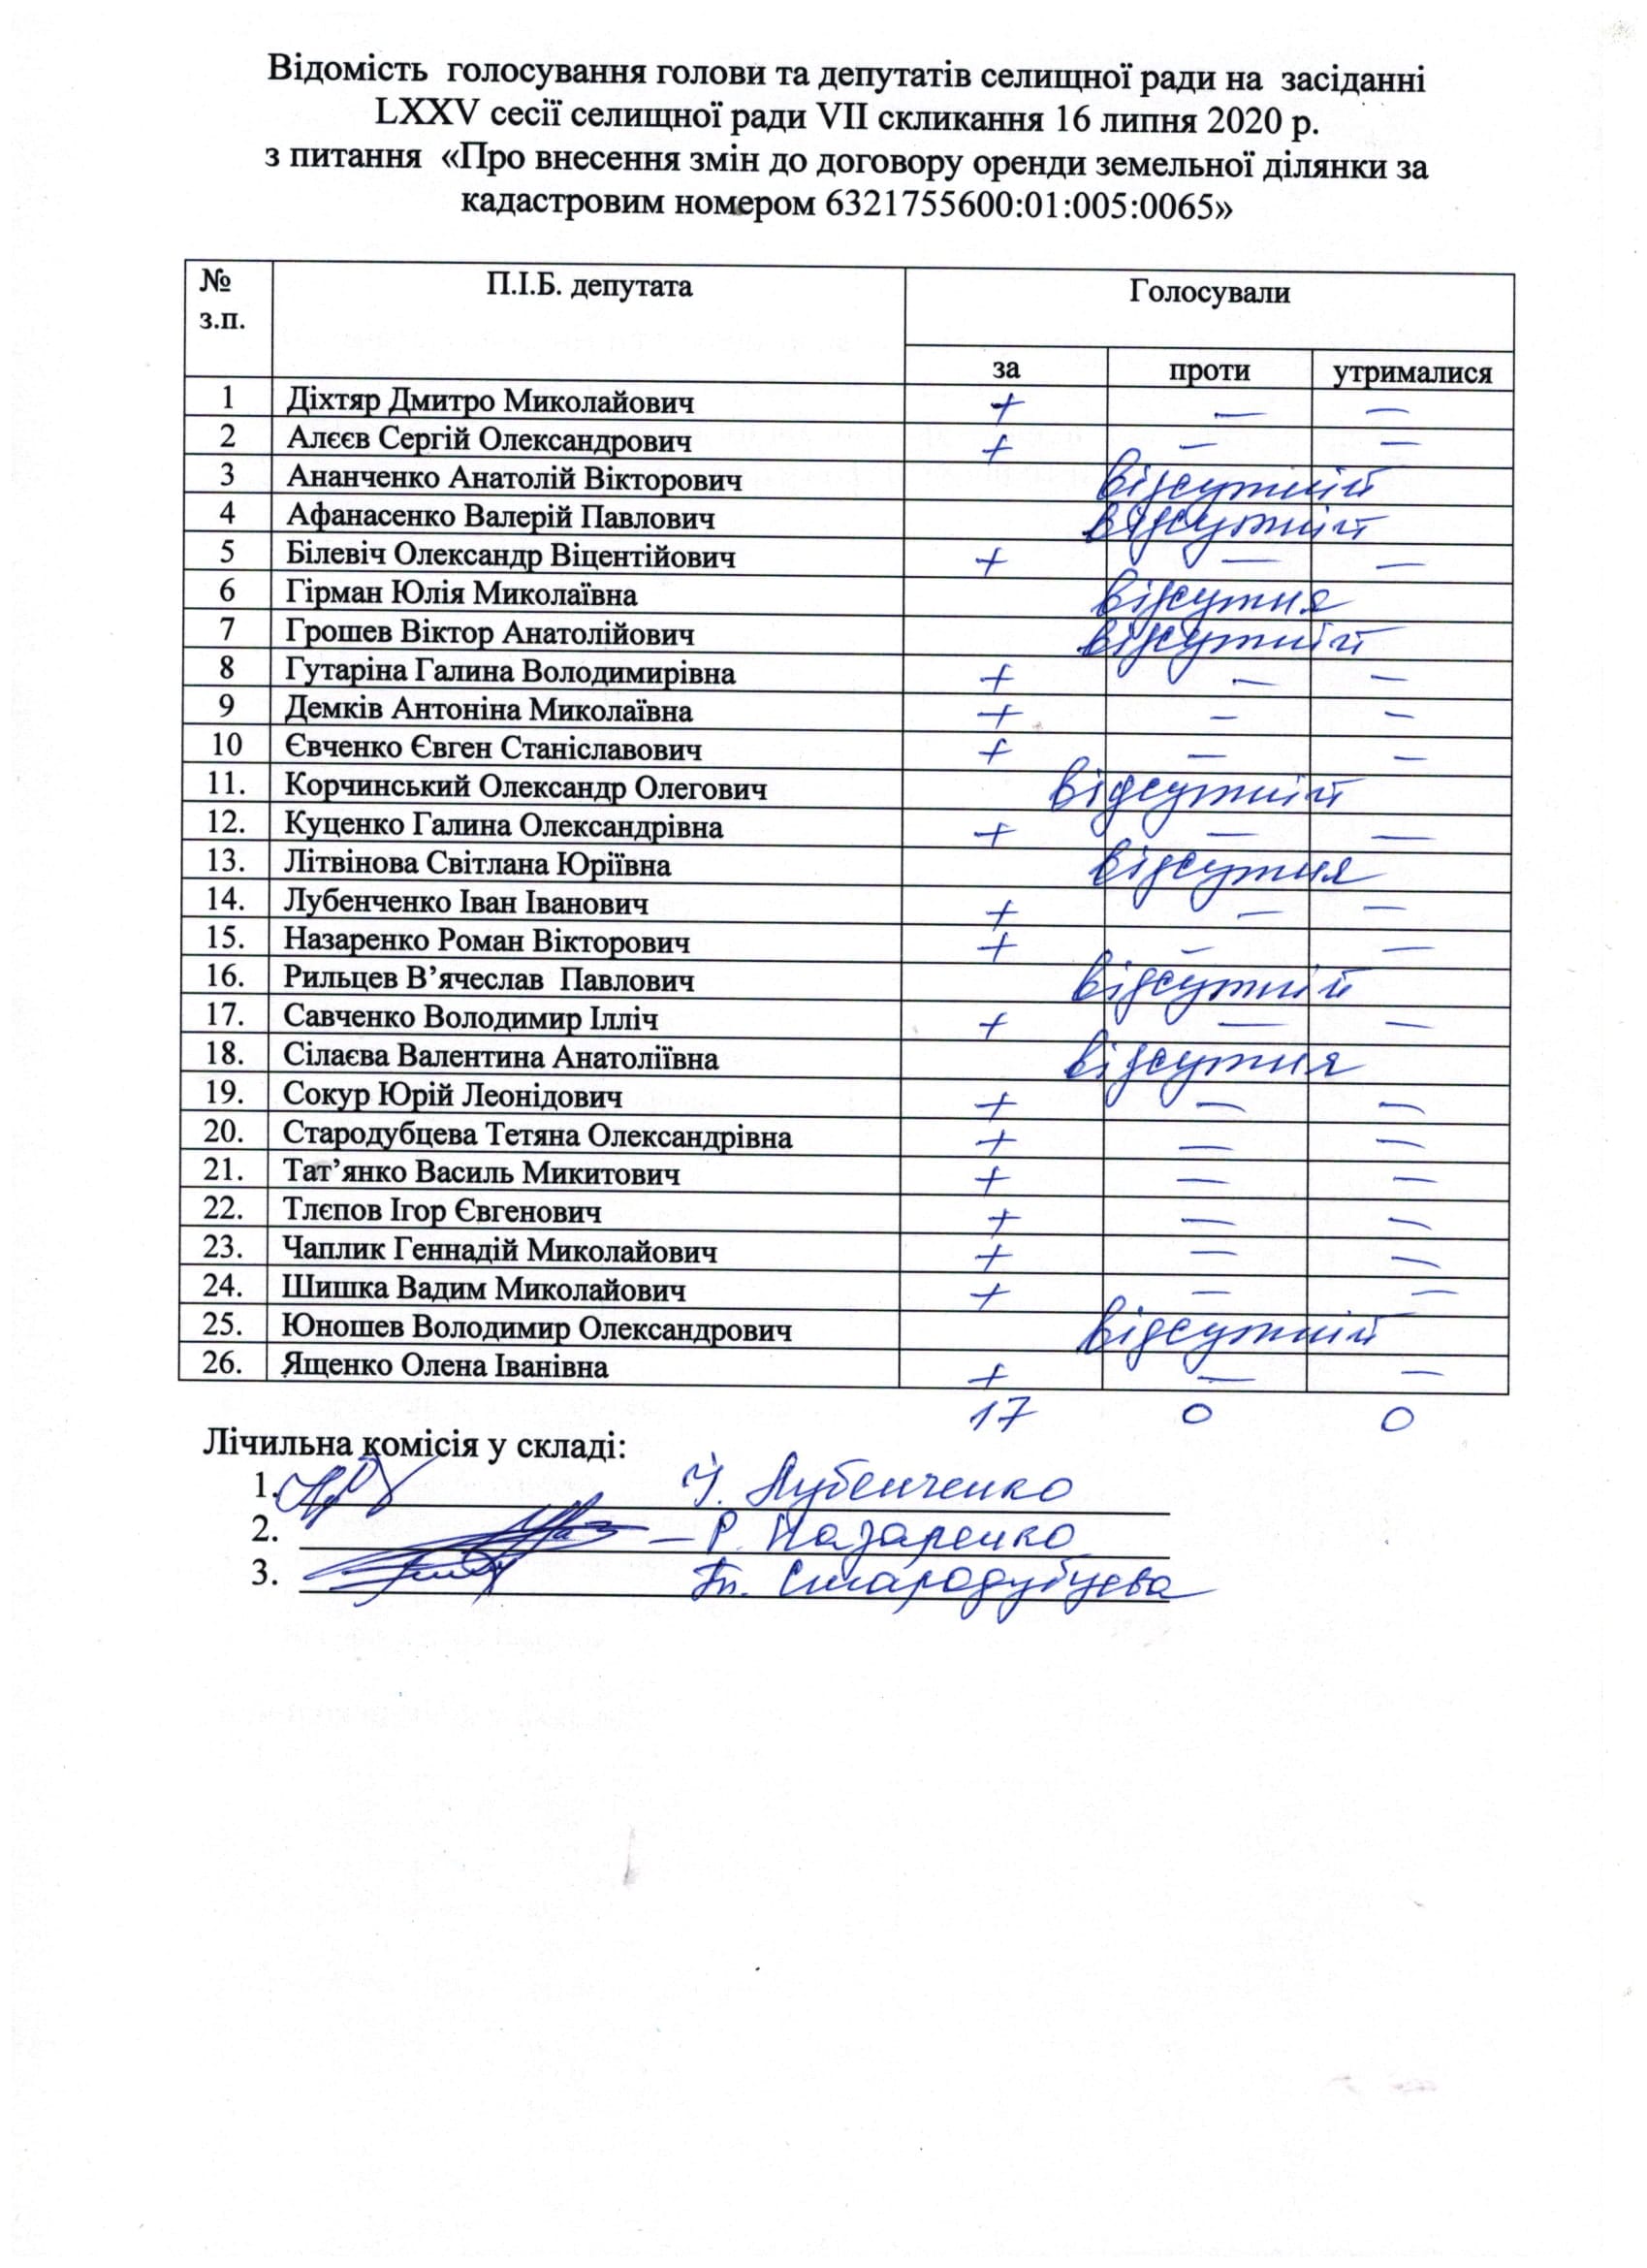 Відомість голосування голови та депутатів селищної ради на засіданні
LXXV сесії селищної ради VII скликання 16 липня 2020 р.
з питання «Про внесення змін до договору оренди земельної ділянки за
кадастровим номером 6321755600:01:005:0065»
№ з.п. П.І.Б. депутата Голосували
за проти утрималися
1 Діхтяр Дмитро Миколайович + — —
2 Алєєв Сергій Олександрович + — —
3 Ананченко Анатолій Вікторович відсутній
4 Афанасенко Валерій Павлович відсутній
5 Білевіч Олександр Віцентійович + — —
6 Гірман Юлія Миколаївна відсутня
7 Грошев Віктор Анатолійович відсутній
8 Гутаріна Галина Володимирівна + — —
9 Демків Антоніна Миколаївна + — —
10 Євченко Євген Станіславович + — —
11. Корчинський Олександр Олегович відсутній
12. Куценко Галина Олександрівна + — —
13. Літвінова Світлана Юріївна відсутня
14. Лубенченко Іван Іванович + — —
15. Назаренко Роман Вікторович + — —
16. Рильцев В’ячеслав Павлович відсутній
17. Савченко Володимир Ілліч + — —
18. Сілаєва Валентина Анатоліївна відсутня
19. Сокур Юрій Леонідович + — —
20. Стародубцева Тетяна Олександрівна + — —
21. Тат’янко Василь Микитович + — —
22. Тлєпов Ігор Євгенович + — —
23. Чаплик Геннадій Миколайович + — —
24. Шишка Вадим Миколайович + — —
25. Юношев Володимир Олександрович відсутній
26. Ященко Олена Іванівна + — —
17 0 0
Лічильна комісія у складі:
1. І. Лубенченко
2. — Р. Назаренко
3. Т. Стародубцева